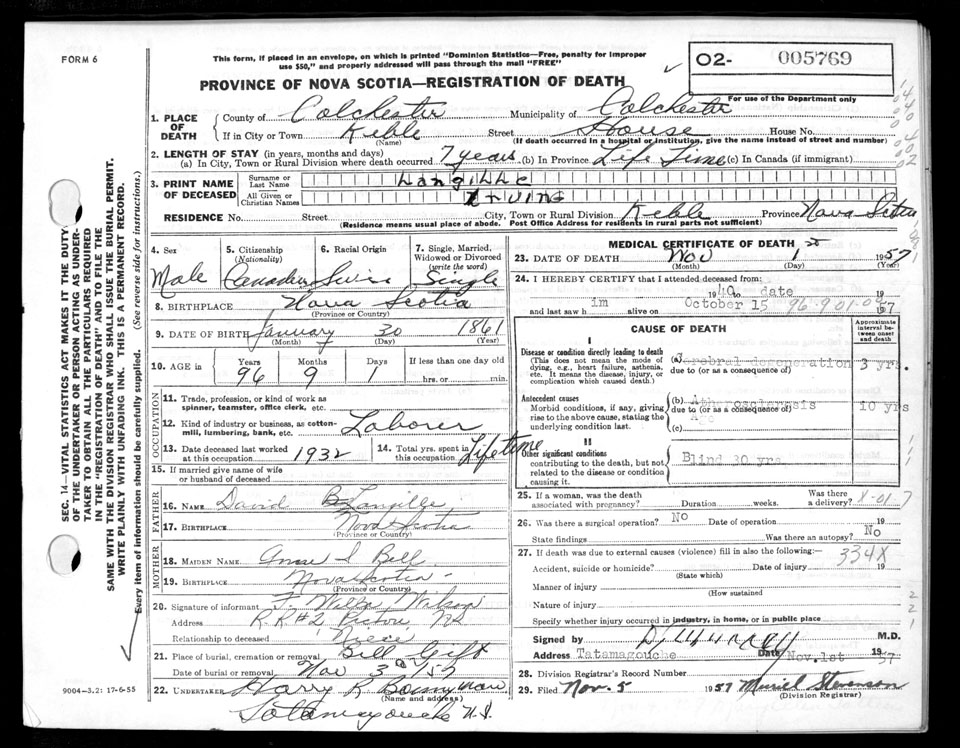 FORM 6
This form, if placed in an envelope, on which is printed "Dominion Statistics—Free, penalty for improper
use $50," and properly addressed will pass through the mail "FREE"
O2- 005769
PROVINCE OF NOVA SCOTIA—REGISTRATION OF DEATH
For use of the Department only
1. PLACE OF DEATH
County of Colchester Municipality of Colchester
If in City or Town Keble Street House House No.
(Name) (If death occurred in a hospital or institution, give the name instead of street and number)
2. LENGTH OF STAY (in years, months and days)
(a) In City, Town or Rural Division where death occurred 7 years (b) In Province Life Time (c) In Canada (if immigrant)
3. PRINT NAME OF DECEASED
Surname or Last Name Langille
All Given or Christian Names Irving
RESIDENCE No. Street City, Town or Rural Division Keble Province Nova Scotia
(Residence means usual place of abode. Post Office Address for residents in rural parts not sufficient)
4. Sex 5. Citizenship (Nationality) 6. Racial Origin 7. Single, Married, Widowed or Divorced (write the word)
Male Canadian Swiss Single
8. BIRTHPLACE Nova Scotia
(Province or Country)
9. DATE OF BIRTH January 30 1861
(Month) (Day) (Year)
10. AGE in Years Months Days If less than one day old
96 9 1 hrs. or min.
OCCUPATION
11. Trade, profession, or kind of work as
spinner, teamster, office clerk, etc.
12. Kind of industry or business, as cotton-
mill, lumbering, bank, etc. Laborer
13. Date deceased last worked
at this occupation 1932
14. Total yrs. spent in
this occupation Lifetime
15. If married give name of wife
or husband of deceased
FATHER
16. NAME David B Langille
17. BIRTHPLACE Nova Scotia
(Province or Country)
MOTHER
18. MAIDEN NAME Bell
19. BIRTHPLACE Nova Scotia
(Province or Country)
20. Signature of informant Wilson
Address RR#2 Pictou NS
Relationship to deceased Niece
21. Place of burial, cremation or removal Bill Gift
Date of burial or removal Nov 3rd 57
22. UNDERTAKER Harry R
(Name and address)
Tatamagouche N.S.
9004—3.2: 17-6-55
MEDICAL CERTIFICATE OF DEATH
23. DATE OF DEATH Nov 1 1957
(Month) (Day) (Year)
24. I HEREBY CERTIFY that I attended deceased from:
1940 to date 19
and last saw h im alive on October 15 1957
96-9-01-0
CAUSE OF DEATH
Approximate interval between onset and death
I
Disease or condition directly leading to death
(This does not mean the mode of
dying, e.g., heart failure, asthenia,
etc. It means the disease, injury, or
complication which caused death.)
(a) Cerebral degeneration 3 yrs.
due to (or as a consequence of)
Antecedent causes
Morbid conditions, if any, giving
rise to the above cause, stating the
underlying condition last.
(b) Atherosclerosis 10 yrs
due to (or as a consequence of)
(c) Age
II
Other significant conditions
contributing to the death, but not
related to the disease or condition
causing it.
Blind 30 yrs
25. If a woman, was the death
associated with pregnancy? Duration weeks. Was there a delivery?
26. Was there a surgical operation? No Date of operation 19
State findings Was there an autopsy? No
27. If death was due to external causes (violence) fill in also the following:—
334X
Accident, suicide or homicide? Date of injury 19
(State which)
Manner of injury
(How sustained
Nature of injury
Specify whether injury occurred in industry, in home, or in public place
Signed by M.D.
Address Tatamagouche Date Nov. 1st 1957
28. Division Registrar's Record Number
29. Filed Nov. 5 1957 Muriel Stevenson
(Division Registrar)
SEC. 14—VITAL STATISTICS ACT MAKES IT THE DUTY
OF THE UNDERTAKER OR PERSON ACTING AS UNDER-
TAKER TO OBTAIN ALL THE PARTICULARS REQUIRED
IN THE "REGISTRATION OF DEATH" AND TO FILE THE
SAME WITH THE DIVISION REGISTRAR WHO SHALL ISSUE THE BURIAL PERMIT.
WRITE PLAINLY WITH UNFADING INK. THIS IS A PERMANENT RECORD.
Every item of information should be carefully supplied. (See reverse side for instructions.)